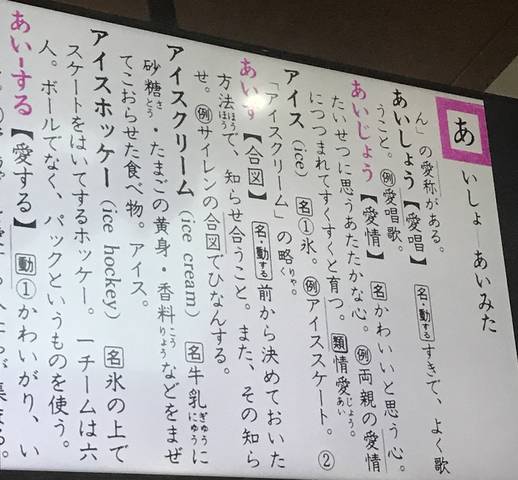 あ
いしょ―あいみた
ん」の愛称がある。
あいしょう【愛唱】 名・動する すきで、よく歌
うこと。例愛唱歌。
あいじょう【愛情】 名 かわいいと思う心。
たいせつに思うあたたかな心。例両親の愛情
につつまれてすくすくと育つ。類情愛じょうあい。
アイス(ice) 名①氷。例アイススケート。②
「アイスクリーム」の略りゃく。
あいず【合図】 名・動する 前から決めておいた
方法ほうほうで、知らせ合うこと。また、その知ら
せ。例サイレンの合図でひなんする。
アイスクリーム(ice cream) 名 牛乳ぎゅうにゅうに
砂糖さとう・たまごの黄身・香料こうりょうなどをまぜ
てこおらせた食べ物。アイス。
アイスホッケー(ice hockey) 名 氷の上で
スケートをはいてするホッケー。一チームは六
人。ボールでなく、パックというものを使う。
あい-する【愛する】 動①かわいがり、い